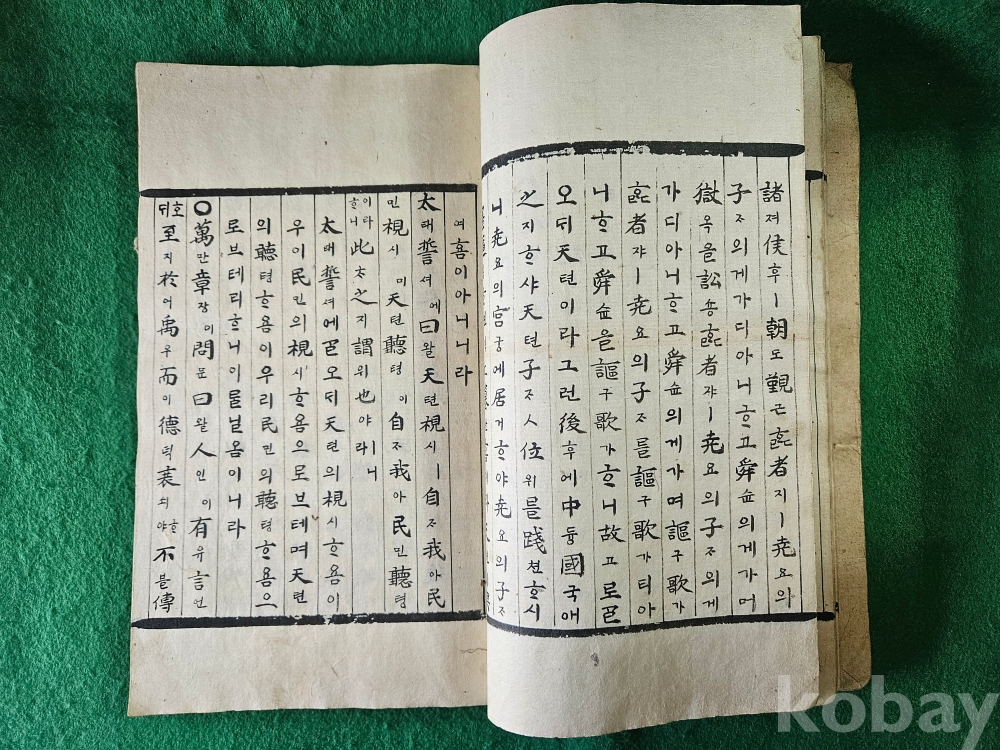 諸져侯후ㅣ朝됴覲근ᄒᆞᆯ者지ㅣ堯요의
子ᄌᆞ의게가디아니ᄒᆞ고舜슌의게가며
獄옥을訟숑ᄒᆞᆯ者쟈ㅣ堯요의子ᄌᆞ의게
가디아니ᄒᆞ고舜슌의게가며謳구歌가
ᄒᆞᆯ者쟈ㅣ堯요의子ᄌᆞ를謳구歌가티아
니ᄒᆞ고舜슌을謳구歌가ᄒᆞ니故고로ᄀᆞᆯ
오ᄃᆡ天텬이라그런後후에中듕國국애
之지ᄒᆞ샤天텬子ᄌᆞㅅ位위를踐쳔ᄒᆞ시
니堯요의宮궁에居거ᄒᆞ야堯요의子ᄌᆞ
여홈이아니니라
太태誓셔에曰왈天텬視시ㅣ自ᄌᆞ我아民
민視시며天텬聽텽이自ᄌᆞ我아民민聽텽
이라ᄒᆞ니此ᄎᆞ之지謂위也야ㅣ니라
太태誓셔에ᄀᆞᆯ오ᄃᆡ天텬의視시ᄒᆞ욤이
우리民민의視시ᄒᆞ욤으로브테며天텬
의聽텽ᄒᆞ욤이우리民민의聽텽ᄒᆞ욤으
로브테라ᄒᆞ니이를닐옴이니라
○萬만章쟝이問문曰왈人인이有유言언
호ᄃᆡ至지於어禹우而이德덕衰쇠ᄒᆞ야不블傳
kobay